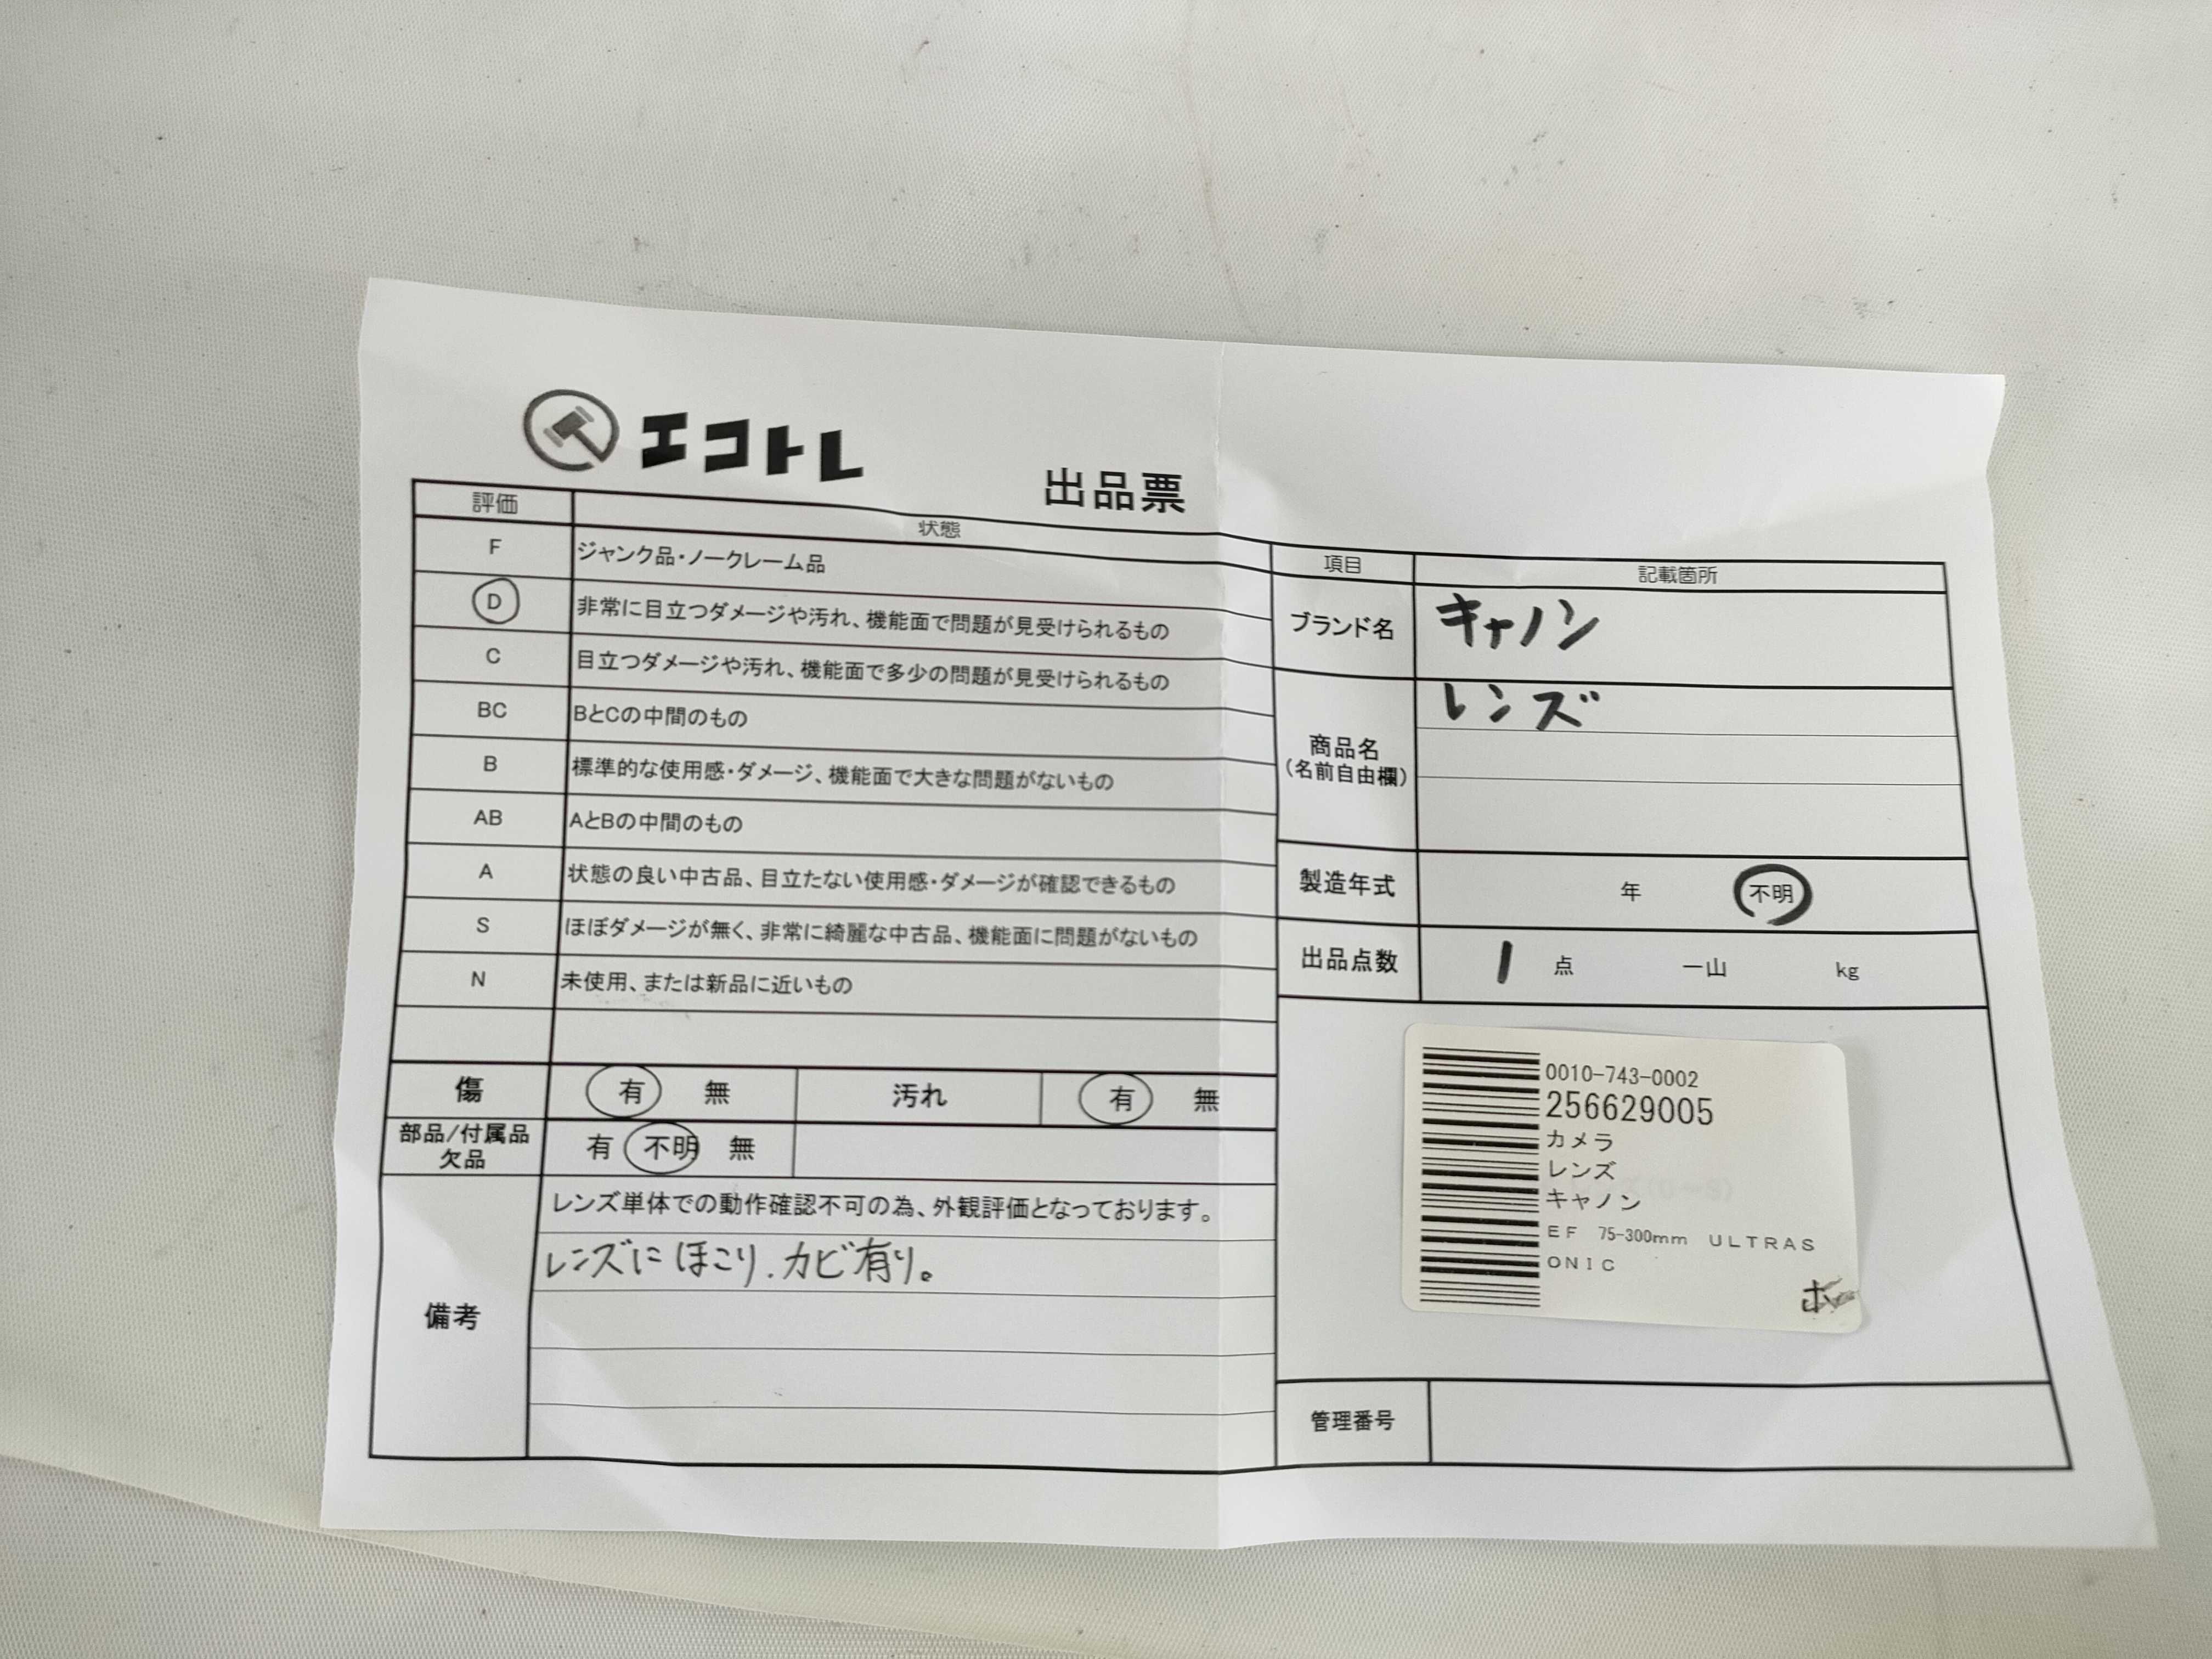 エコトレ
出品票
評価 状態
F ジャンク品・ノークレーム品
D 非常に目立つダメージや汚れ、機能面で問題が見受けられるもの
C 目立つダメージや汚れ、機能面で多少の問題が見受けられるもの
BC BとCの中間のもの
B 標準的な使用感・ダメージ、機能面で大きな問題がないもの
AB AとBの中間のもの
A 状態の良い中古品、目立たない使用感・ダメージが確認できるもの
S ほぼダメージが無く、非常に綺麗な中古品、機能面に問題がないもの
N 未使用、または新品に近いもの
傷 有 無 汚れ 有 無
部品/付属品
欠品
有 不明 無
備考
レンズ単体での動作確認不可の為、外観評価となっております。
レンズにほこり.カビ有り。
項目 記載箇所
ブランド名 キャノン
商品名
(名前自由欄)
レンズ
製造年式 年 不明
出品点数 1 点 一山 kg
0010-743-0002
256629005
カメラ
レンズ
キャノン
EF 75-300mm ULTRAS
ONIC
管理番号